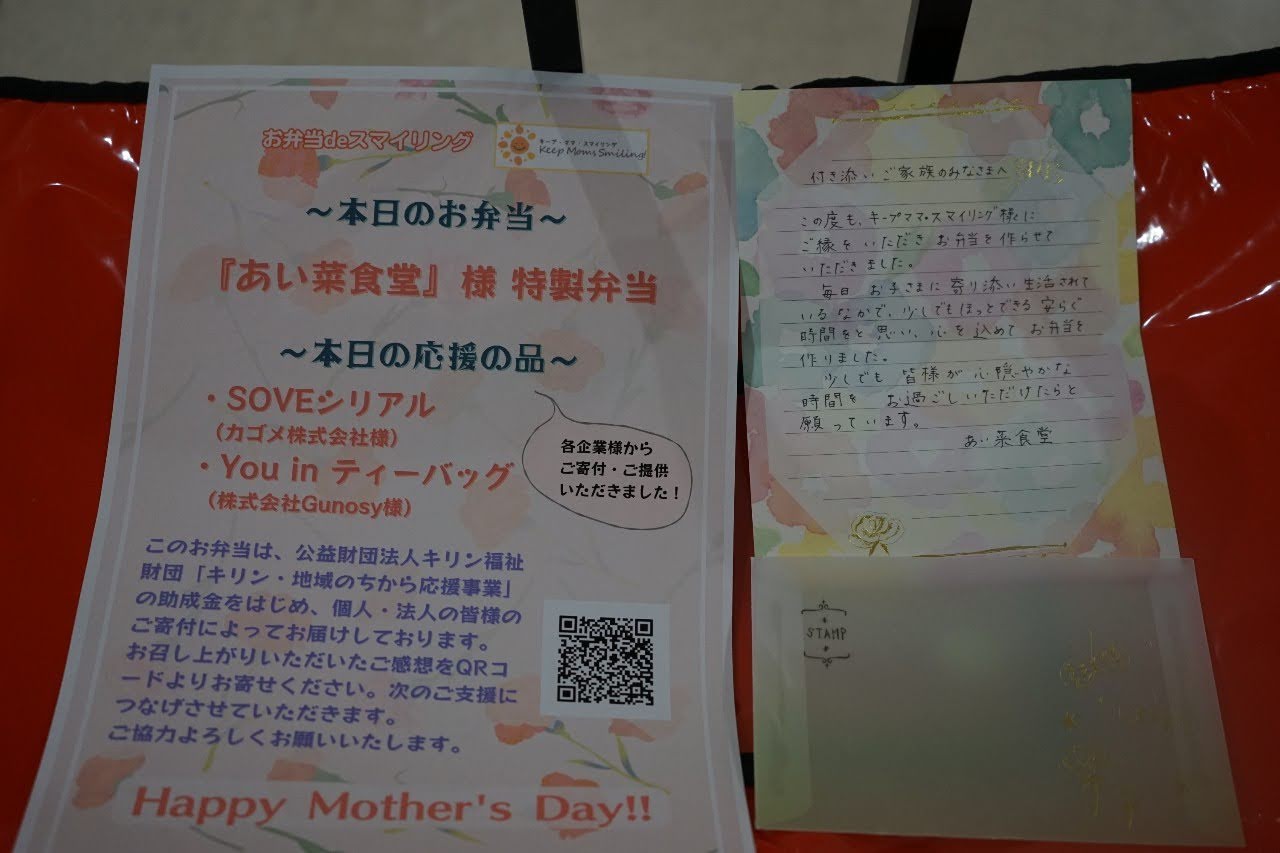 お弁当deスマイリング
キープ・ママ・スマイリング
Keep Moms Smiling!
～本日のお弁当～
『あい菜食堂』様 特製弁当
～本日の応援の品～
・SOVEシリアル
(カゴメ株式会社様)
・You in ティーバッグ
(株式会社Gunosy様)
各企業様から
ご寄付・ご提供
いただきました！
このお弁当は、公益財団法人キリン福祉
財団「キリン・地域のちから応援事業」
の助成金をはじめ、個人・法人の皆様の
ご寄付によってお届けしております。
お召し上がりいただいたご感想をQRコ
ードよりお寄せください。次のご支援に
つなげさせていただきます。
ご協力よろしくお願いいたします。
Happy Mother's Day!!
付き添いご家族のみなさまへ
この度も、キープママ・スマイリング様に
ご縁をいただき お弁当を作らせて
いただきました。
毎日 お子さまに寄り添い生活されて
いるなかで、少しでもほっとできる安らぐ
時間をと思い、心を込めてお弁当を
作りました。
少しでも 皆様が心穏やかな
時間を お過ごしいただけたらと
願っています。
あい菜食堂
STAMP